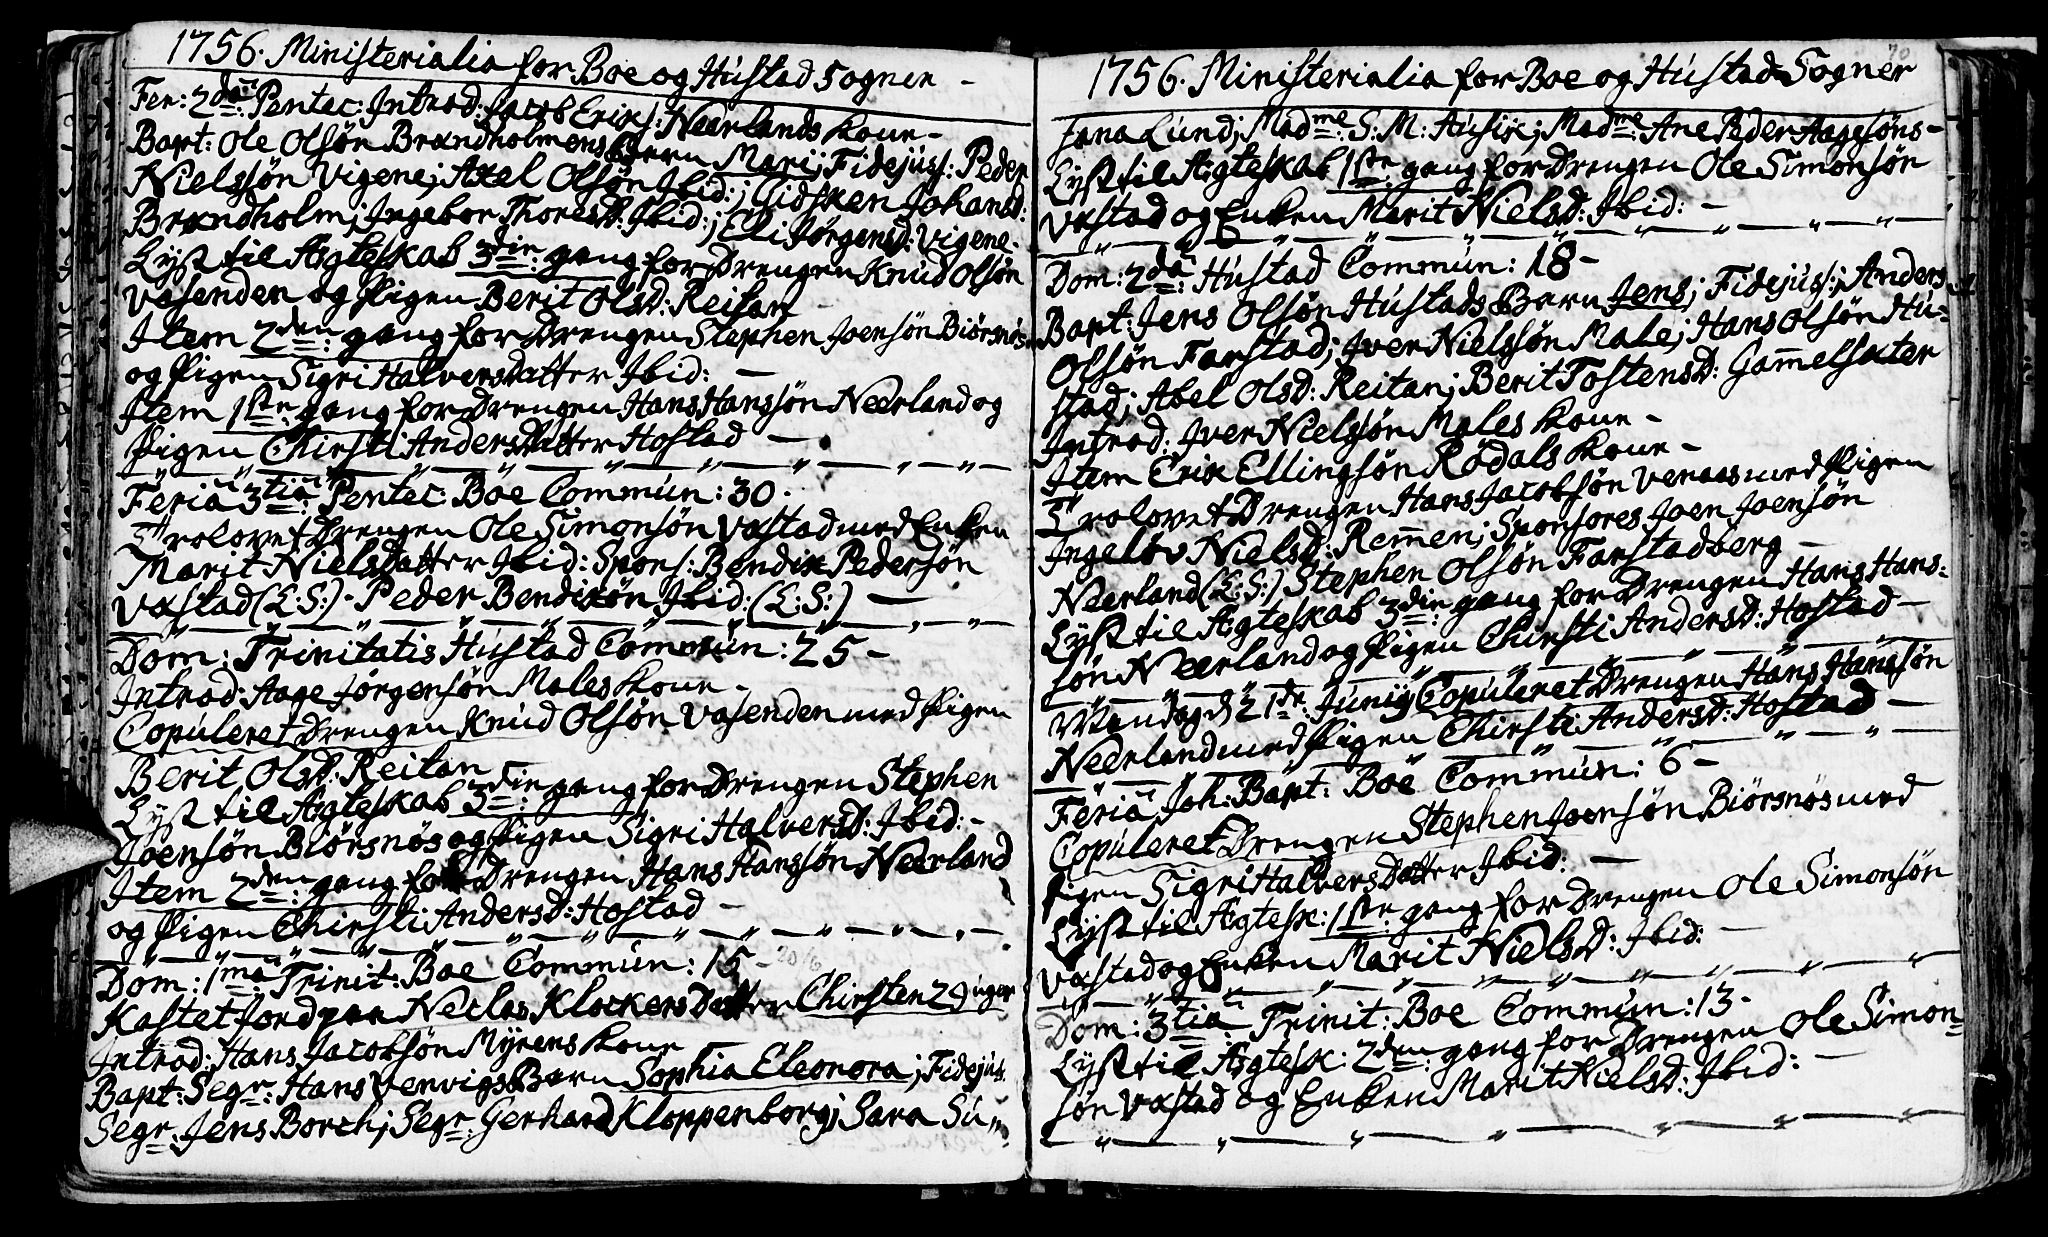 1756. Ministerialia for Boe og Hùstad Sogner -
Fer: 2da: Pentec: Introd: Jacob Eriks: Neerlands Kone -
Bapt: Ole Olsøn Brandholmens Barn Mari; Fidejuss: Peder
Nielssøn Vigene; Axel Olsøn Ibid:; Gidsken Johansd:
Brandholm; Ingebor Thoresd: Ibid:; Eli Jørgensd: Vigene -
Lyst til Ægteskab 3die: gang for Drengen Knud Olsøn
Vasenden og Pigen Berit Olsd: Reitan -
Item 2den: gang for Drengen Stephen Joensøn Biørsnøs
og Pigen Sigri Halversdatter Ibid: -
Item 1ste: gang for Drengen Hans Hanssøn Neerland og
Pigen Chirsti Andersdatter Hostad -
Feria 3tia: Pentec: Boe Commùn: 30.
Trolovet Drengen Ole Simonsøn Vastad med Enken
Marit Nielsdatter Ibid: Spons: Bendix Pedersøn
Vastad (L:S:) - Peder Bendixøn Ibid: (L:S:) -
Dom: Trinitatis Hùstad Commùn: 25 -
Introd: Aage Jørgensøn Males Kone -
Copùleret Drengen Knud Olsøn Vasenden med Pigen
Berit Olsd: Reitan
Lyst til Ægteskab 3die: gang for Drengen Stephen
Joensøn Biørsnøs og Pigen Sigri Halversd: Ibid: -
Item 2den: gang for Drengen Hans Hanssøn Neerland
og Pigen Chirsti Andersd: Hostad -
Dom: 1ma: Trinit: Boe Commùn: 15 -
Kastet Jord paa Neclas Klockers Datter Chirsten 29 uger
Introd: Hans Jacobsøn Myrens Kone
Bapt: Segr: Hans Venvigs Barn Sophia Eleonora; Fidejus:
Segr: Jens Borch; Segr: Gerhard Kloppenborg; Sara Su-
1756. Ministerialia for Boe og Hùstad Sogner
sana Lund; Madme: S. M: Husix; Madme: Ane Peder Aagesøns -
Lyst til Ægteskab 1ste: gang for Drengen Ole Simonsøn
Vastad og Enken Marit Nielsd: Ibid: -
Dom: 2da: Hùstad Commùn: 18 -
Bapt: Jens Olsøn Hùstads Barn Jens; Fidejuss:; Anders
Olsøn Farstad; Iver Nielssøn Male; Hans Olsøn Hù-
stad; Abel Olsd: Reitan; Berit Tostensd: Gam̄elsæter
Introd: Iver Nielssøn Males Kone -
Item Erik Ellingsøn Rødals Kone -
Trolovet Drengen Hans Jacobsøn Venaas med Pigen
Ingeløv Nielsd: Rem̄en; Sponsores Joen Joensøn
Neerland (L:S:) Stephen Olsøn Farstadberg -
Lyst til Ægteskab 3die: gang for Drengen Hans Hans-
søn Neerland og Pigen Chirsti Andersd: Hostad -
Mandag d 21de: Junij Copùleret Drengen Hans Hanssøn
Neerland med Pigen Chirsti Andersd: Hostad -
Feria Joh: Bapt: Boe Commùn: 6 -
Copùleret Drengen Stephen Joensøn Biørsnøs med
Pigen Sigri Halversdatter Ibid: -
Lyst til Ægtesk: 1ste: gang for Drengen Ole Simonsøn
Vastad og Enken Marit Nielsd: Ibid: -
Dom: 3tia: Trinit: Boe Commùn: 13 -
Lyst til Ægtesk: 2den: gang for Drengen Ole Simon-
søn Vastad og Enken Marit Nielsd: Ibid: -